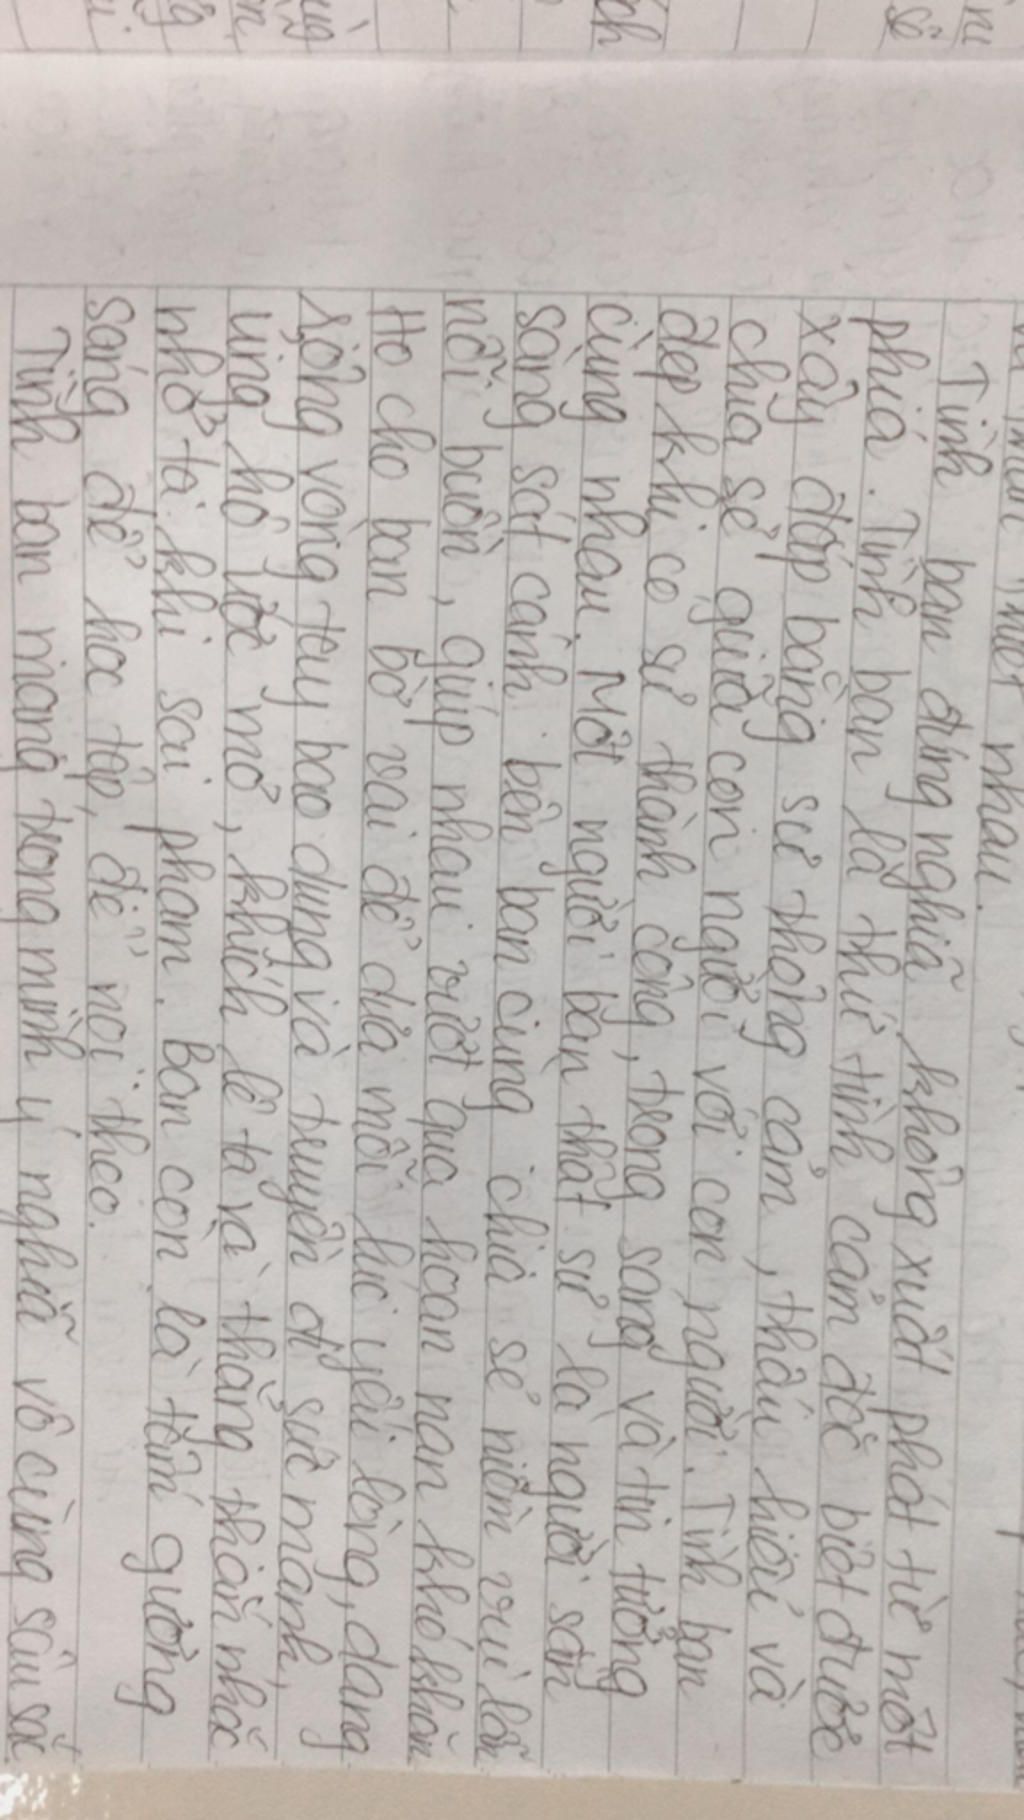 nhau.
Tình bạn đúng nghĩa không xuất phát từ một
phía. Tình bạn là thứ tình cảm đặc biệt được
xây đắp bằng sự thông cảm, thấu hiểu và
chia sẻ giữa con người với con người. Tình bạn
đẹp khi có sự thành công, trong sáng và tin tưởng
cùng nhau. Một người bạn thật sự là người sẵn
sàng sát cánh bên bạn cùng chia sẻ niềm vui lẫn
nỗi buồn, giúp nhau vượt qua hoạn nạn khó khăn
Họ cho bạn bờ vai để dựa mỗi lúc yếu lòng, dang
rộng vòng tay bao dung và truyền đi sức mạnh,
ủng hộ ước mơ, khích lệ ta và thẳng thắn nhắc
nhở ta khi sai phạm. Bạn còn là tấm gương
sáng để học tập, để noi theo.
Tình bạn mang trong mình ý nghĩa vô cùng sâu sắc